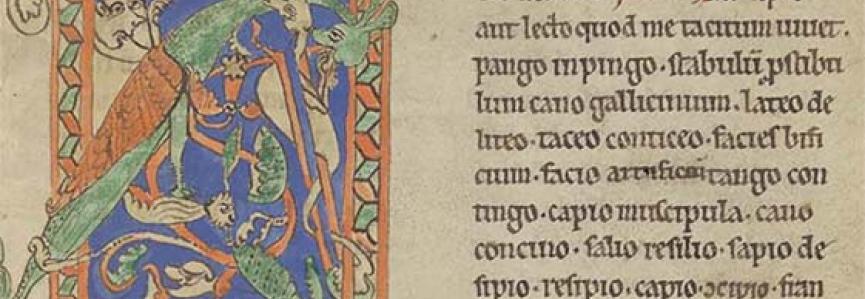 aut lecto quod me tacitum iuuet.
pango inpingo · stabulū pstibu
lum cano gallicinium. lateo de
liteo · taceo conticeo · facies bifi
cium · facio artificiū tango con
tingo · capio muscipula · cano
concino · salio resilio · sapio de
sipio · resipio · capio